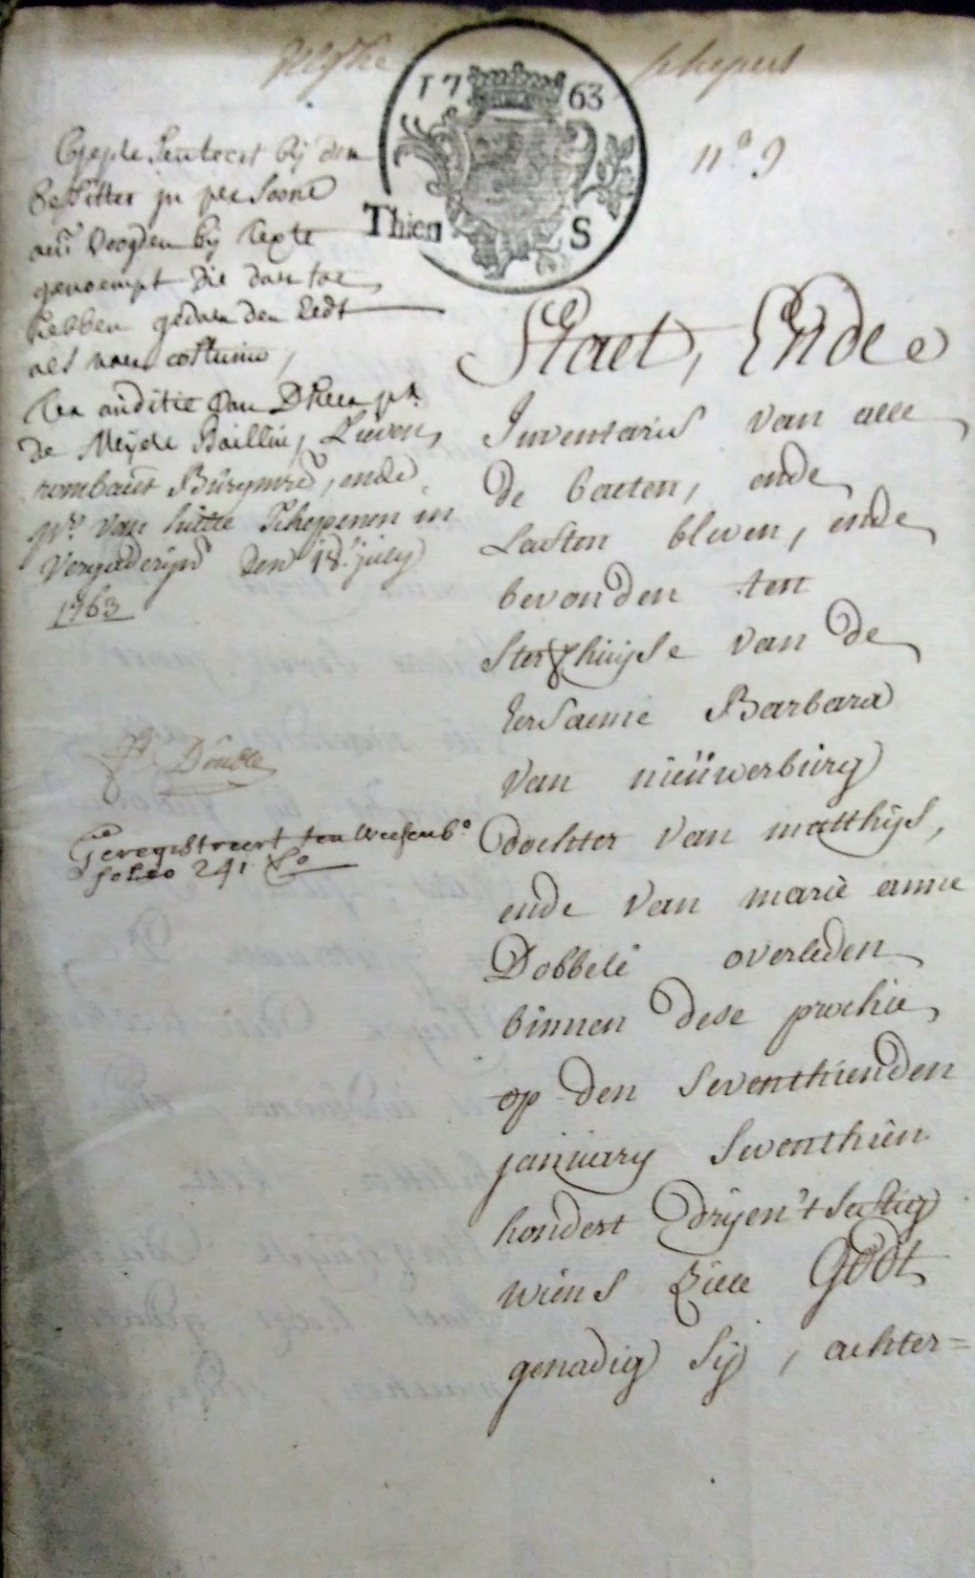 schepers
17 63
Thien S
nº 9
bij den
besitter in persoone
ende vooghden bij texte
genoempt die daer toe
hebben gedaen den Eedt
als naer costume,
Ter auditie van Dheer
de Meijere Bailliu, Lieven
rombaut Burgmre, ende
van hutte Schepenen in
vergaderijnghe den 18 july
1763
Geregistreert ten weesenbº
folio 241
Staet, Ende
Inventaris van alle
de baeten, ende
Lasten bleven, ende
bevonden ten
Sterfhuijse van de
Eersaeme Barbara
van nieüwerburg
dochter van matthijs,
ende van marie anne
Dobbele overleden
binnen dese prochie
op den seventhienden
january seventhien
hondert dryen't sestig
wiens ziele Godt
genadig sij, achter=